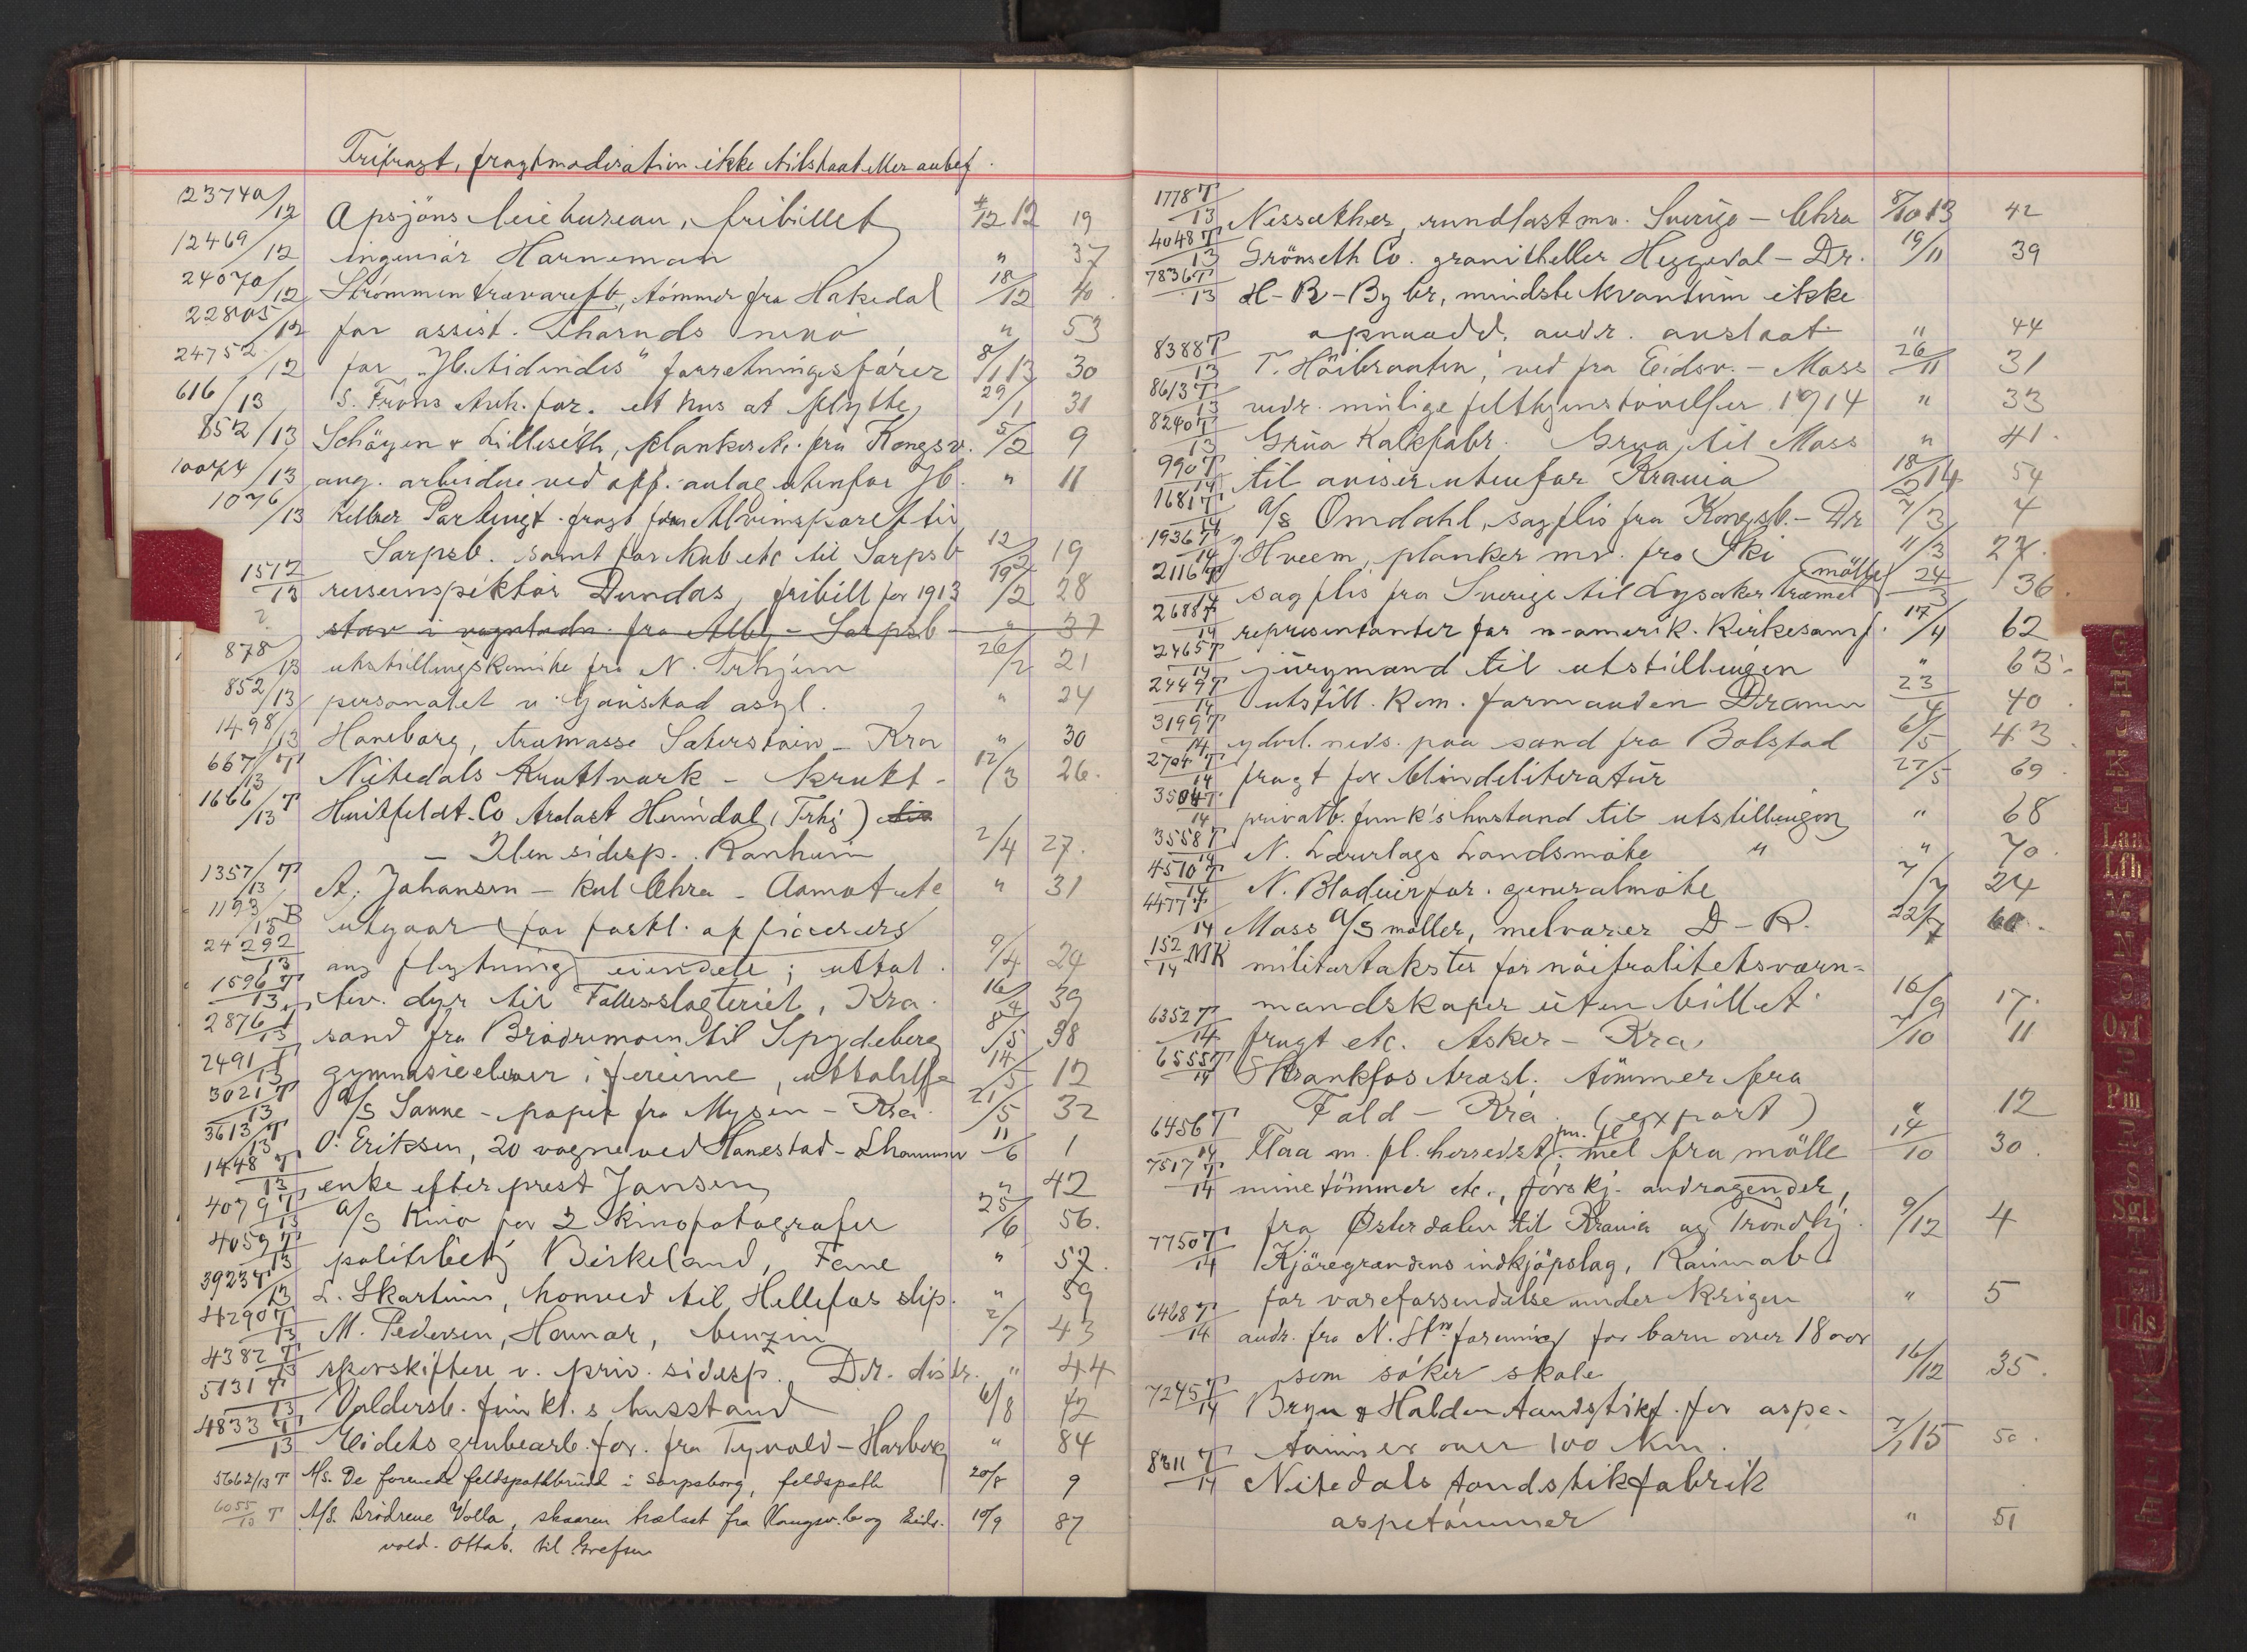 Frifragt, fragtmoderation ikke tilstaat eller anbef.
23740/12 Opsjöns leiebureau, fribillet 4/12 12 19
12469/12 ingeniör Harneman " 37
24070/12 Strömmen trævarefb., tömmer fra Hakedal 18/12 40.
22805/12 for assist. " 53
24752/12 for „Jb.tidendes" forretningsförer 8/1 13 30
616/13 S. Frons Ark. for. et hus at flytte 29/1 31
852/13 Schöyen & Lilleseth, planker etc. fra Kongsv. 5/2 9
10074/13 ang. arbeidere ved opp. anlag utenfor Jb. " 11
1076/13 Kellner Partingt. fragt fra Alvimsporet til
Sarpsb. samt for kub etc til Sarpsb 12/2 19
1512/13 reiseinspektör Dundas, fribill for 1913 19/2 28
? stav i vognladn. fra Alby - Sarpsb " 37
878/13 utstillingskomite fra N. Trhjem 26/2 21
852/13 personalet v. Gaustad asyl. " 24
1498/13 Haneborg, træmasse Sæterstöen - Kra " 30
667/13 T Nitedals Kruttværk - krukt - 12/3 26.
1666/13 T Huitfeldt. Co trælast Heimdal (Trhj) til
- Ilen sidesp. Ranheim 2/4 27.
1357/13 T A. Johansen - kul Chra - Aamot etc " 31
1193/13 B utgaar for forkl. officerers
24292/13 ang flytning eiendele; uttal. 9/4 24
1596 T/13 lev. dyr til Fællesslagteriet, Kra. 16/4 39
2876 T/13 sand fra Brödremoen til Spydeberg 8/5 38
2491 T/13 gymnasieelever i ferierne, uttalelse 14/5 12
3021 T/13 A/S Sanne - papir fra Mysen - Kra. 21/5 32
3613 T/13 O. Eriksen, 20 vogne ved Hanestad - Lhammer 11/6 1
1448 T/13 enke efter prest Jansen " 42
4079 T/13 A/S Kino for 2 kinofotografer 25/6 56.
4059 T/13 politibetj Birkeland, Fane " 57.
3923 T/13 L. Skartum, honved til Hellefos slip. " 59
4290 T/13 M. Pedersen, Hamar, benzin 2/7 43
4382 T/13 sporskiftere v. priv. sidesp. Dr. distr. " 44
5131 T/13 Valdersb. funkt.s husstand 6/8 42
4833 T/13 Eidets grubearb. for. fra Tynvold - Harborg " 84
5662/13 T A/S. De forenede feldspathbrudd i Sarpsborg, feldspath 20/8 9
6055/13 T A/S. Brödrene Volla, skaaren trælast fra Kongsv.b og Eids- 10/9 87
vold. Ottab. til Grefsen
1778 T/13 Nessæther, rundlast mv. Sverige - Chra 8/10 13 42
4048 T/13 Grönseth Co. granitheller Heggedal - Dr. 19/11 39
7836 T/13 H-B-By br, mindste kvantum ikke
opnaadd, andr. avslaat " 44
8388 T/13 T. Höibraaten, ved fra Eidsv. - Moss 26/11 31
8613 T/13 vedr. mulige felttjenstövelser 1914 " 33
8240 T/13 Grua Kalkfabr. Grua til Moss " 41.
990 T/14 til aviser utenfor Krania 18/2 14 54
1681 T/14 A/S Omdahl, sagflis fra Kongsb. - Dr 7/3 7
1936 T/14 Hveem, planker mv. fra Ski 11/3 27.
2116 T/14 sagflis fra Sverige til Lysaker træmel (mölle) 24/3 36.
2688 T/14 representanter for n-amerik. Kirkesamf. 17/4 62
2465 T/14 jurymand til utstillingen " 63.
2449 T/14 utstill. kom. formanden Drammen 23/4 40.
3199 T/14 yderl. neds. paa sand fra Bolstad 6/5 43.
2704 T/14 fragt for blindeliteratur 27/5 69.
3504 T/14 privatb. funk's hustand til utstillingen " 68
3558 T/14 N. Lærerlags Landsmöte " " 70.
4510 T/14 N. Bladeierfor. generalmöte 7/7 24
4477 T/14 Moss A/S möller, melvarer D - R. 22/7 60.
152/14 MK militærtakster for nöitralitetsværn-
mandskaper uten billet. 16/9 17.
6352 T/14 frugt etc. Asker - Kra, 7/10 11
6555 T/14 Skrankfos træsl. tömmer fra
Fald - Kra. (export) " 12
6456 T/14 Flaa m. fl. herreder, mel fra mölle 14/10 30.
7517 T/14 minetömmer etc., forskj. andragender,
fra Østerdalen til Krania og Trondhj. 9/12 4
7750 T/14 Kjöregrændens indkjöpslag,
for vareforsendelse under krigen " 5
6468 T/14 andr. fra N. Stm forening for barn over 18 aar
som söker skole 16/12 35.
7245 T/14 Bryn & Halden tændstikf. for aspe-
tömmer over 100 km. 7/1 15 50.
8311 T/14 Nitedals tændstikfabrik
aspetömmer " 51
G
H
I
J
K
L
Laa
Lfh
M
N
O
Ovf
P
Pm
R
S
Sgl
T
U
Uds